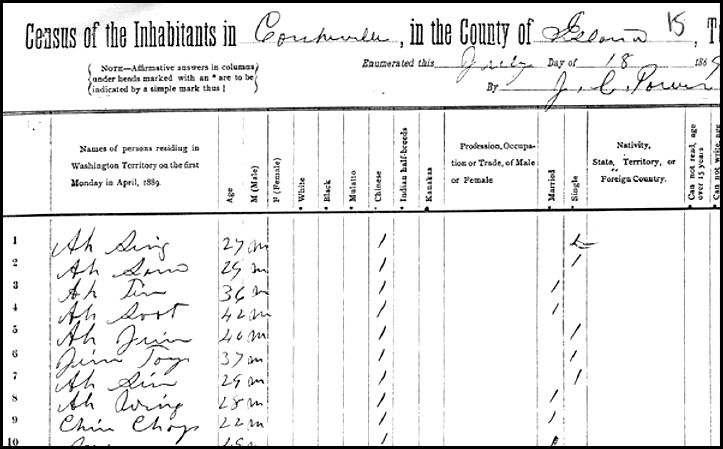 Census of the Inhabitants in Coupeville, in the County of Island 15, T
(NOTE—Affirmative answers in columns
under heads marked with an * are to be
indicated by a simple mark thus /)
Enumerated this July Day of 18 1889
By J. C. Power
Names of persons residing in
Washington Territory on the first
Monday in April, 1889.
Age
M (Male)
F (Female)
* White
* Black
* Mulatto
* Chinese
* Indian half-breeds
* Kanakas
Profession, Occupa-
tion or Trade, of Male
or Female
* Married
* Single
Nativity,
State, Territory, or
Foreign Country.
* Can not read, age
over 15 years
* Can not write, age
1 Ah Sing 27 m / /
2 Ah Sam 29 m / /
3 Ah Tim 36 m / /
4 Ah Soot 42 m / /
5 Ah Jim 40 m / /
6 Jim Toy 37 m / /
7 Ah Sim 29 m / /
8 Ah Wing 28 m / /
9 Chin Choy 22 m / /
10